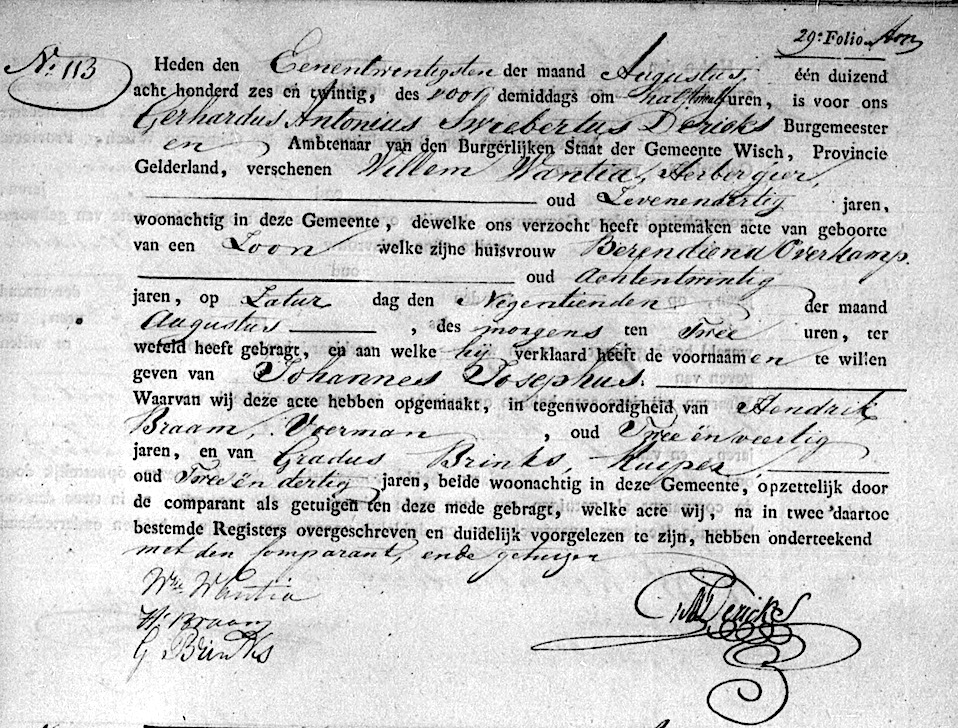 29e Folio
No 113
Heden den Eenentwentigsten der maand Augustus, één duizend
acht honderd zes en twintig, des voor demiddags om half uren, is voor ons
Gerhardus Antonius Swiebertus Dericks Burgemeester
en Ambtenaar van den Burgerlijken Staat der Gemeente Wisch, Provincie
Gelderland, verschenen Willem Wantia, Herbergier,
oud Zevenendertig jaren,
woonachtig in deze Gemeente, dewelke ons verzocht heeft optemaken acte van geboorte
van een Zoon welke zijne huisvrouw Berendiena Overkamp.
oud Achtentwintig
jaren, op Zatur dag den Negentienden der maand
Augustus , des morgens ten Twee uren, ter
wereld heeft gebragt, en aan welke hij verklaard heeft de voornaamen te willen
geven van Johannes Josephus.
Waarvan wij deze acte hebben opgemaakt, in tegenwoordigheid van Hendrik
Braam, Voerman , oud Twee ën veertig
jaren, en van Gradus Brinks, Kuiper,
oud Twee ën dertig jaren, beide woonachtig in deze Gemeente, opzettelijk door
de comparant als getuigen ten deze mede gebragt, welke acte wij, na in twee daartoe
bestemde Registers overgeschreven en duidelijk voorgelezen te zijn, hebben onderteekend
met den Comparant, ende getuigen
Wm Wantia
Hk Braam
G Brinks
Dericks